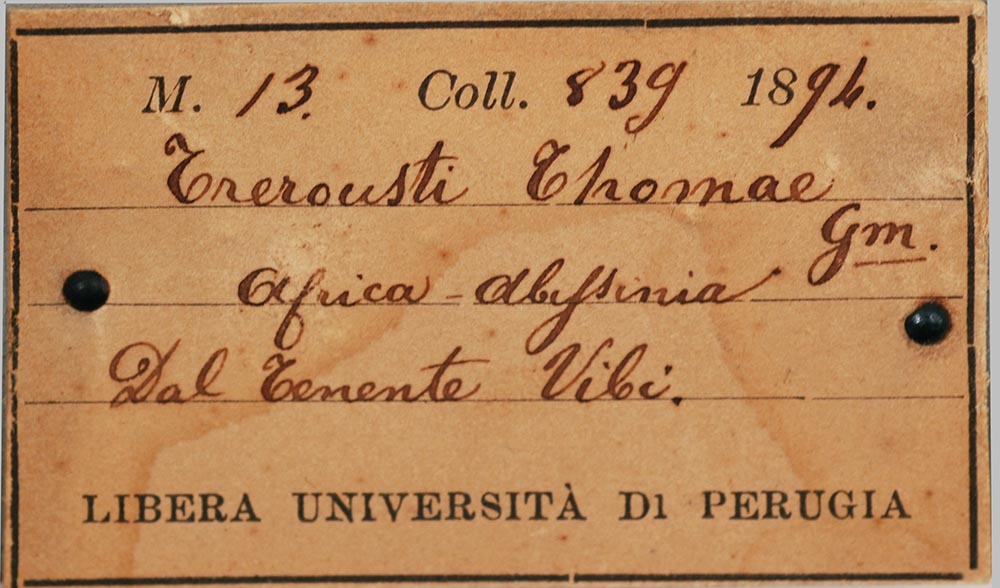 M. 13. Coll. 839 1894.
Trerousti Thomae
Gm.
Africa - Abissinia
Dal Tenente Vibi.
LIBERA UNIVERSITÀ DI PERUGIA